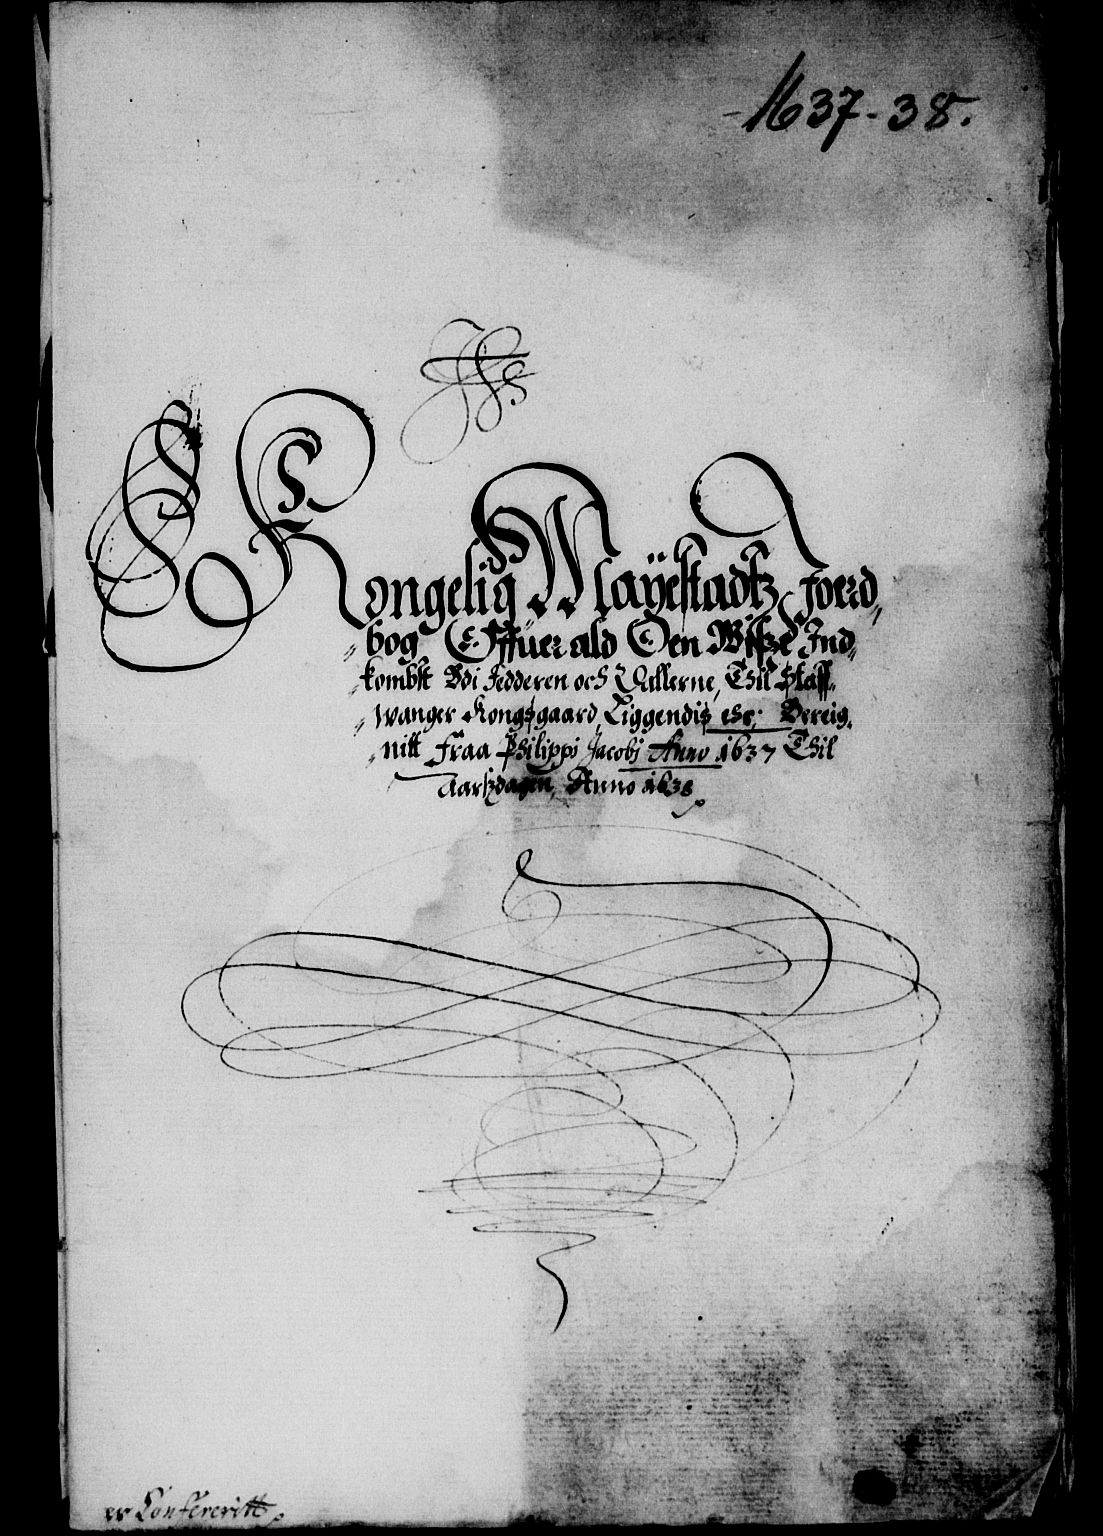 1637-38.
Kongelig Mayestadtz Joerd,
bog Offuer ald Den Wisze Ind,
kombst Vdi Jedderen och Dallerne, Thil Staff,
wanger Kongsgaard, Liggendis etc: Bereig,
nitt Fraa Philippi Jacobj Anno 1637 Thil
Aarszdagen, Anno 1638
er Confereritt